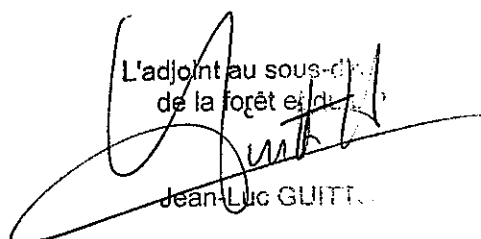 L'adjoint au sous-
de la forêt et du
Jean-Luc